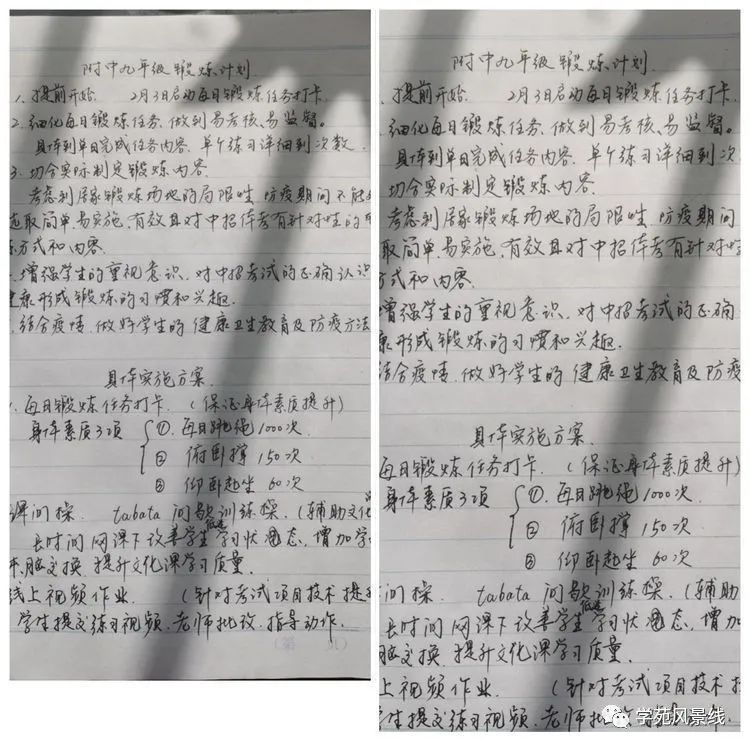 附中九年级锻炼计划
1、提前开始. 2月3日启动每日锻炼任务打卡.
2、细化每日锻炼任务、做到易考核、易监督。
具体到单日完成任务内容、单个练习详细到次数.
3、切合实际制定锻炼内容.
考虑到居家锻炼场地的局限性、防疫期间不能
选取简单、易实施、有效且对中招体考有针对性的
方式和内容.
增强学生的重视意识、对中招考试的正确认识
形成锻炼的习惯和兴趣.
结合疫情、做好学生的健康卫生教育及防疫方法
具体实施方案.
1、每日锻炼任务打卡. (保证身体素质提升)
身体素质3项 ①. 每日跳绳1000次.
② 俯卧撑 150次
③ 仰卧起坐 60次
课间操. tabata间歇训练操. (辅助文化
长时间网课下改善学生学习状态、增加学
脑交换、提升文化课学习质量.
线上视频作业. (针对考试项目技术提
学生提交练习视频、老师批改、指导动作.
附中九年级锻炼计划.
、提前开始. 2月3日启动每日锻炼任务打卡.
细化每日锻炼任务、做到易考核、易监督。
具体到单日完成任务内容、单个练习详细到次
切合实际制定锻炼内容.
考虑到居家锻炼场地的局限性、防疫期间
取简单、易实施、有效且对中招体考有针对性
方式和内容.
增强学生的重视意识、对中招考试的正确
形成锻炼的习惯和兴趣.
结合疫情、做好学生的健康卫生教育及防疫
具体实施方案.
每日锻炼任务打卡. (保证身体素质提升)
身体素质3项 ①. 每日跳绳1000次.
② 俯卧撑 150次
③ 仰卧起坐 60次
间操. tabata间歇训练操. (辅助
长时间网课下改善学生学习状态、增加
脑交换、提升文化课学习质量.
上视频作业. (针对考试项目技术
学生提交练习视频、老师批
学苑风景线